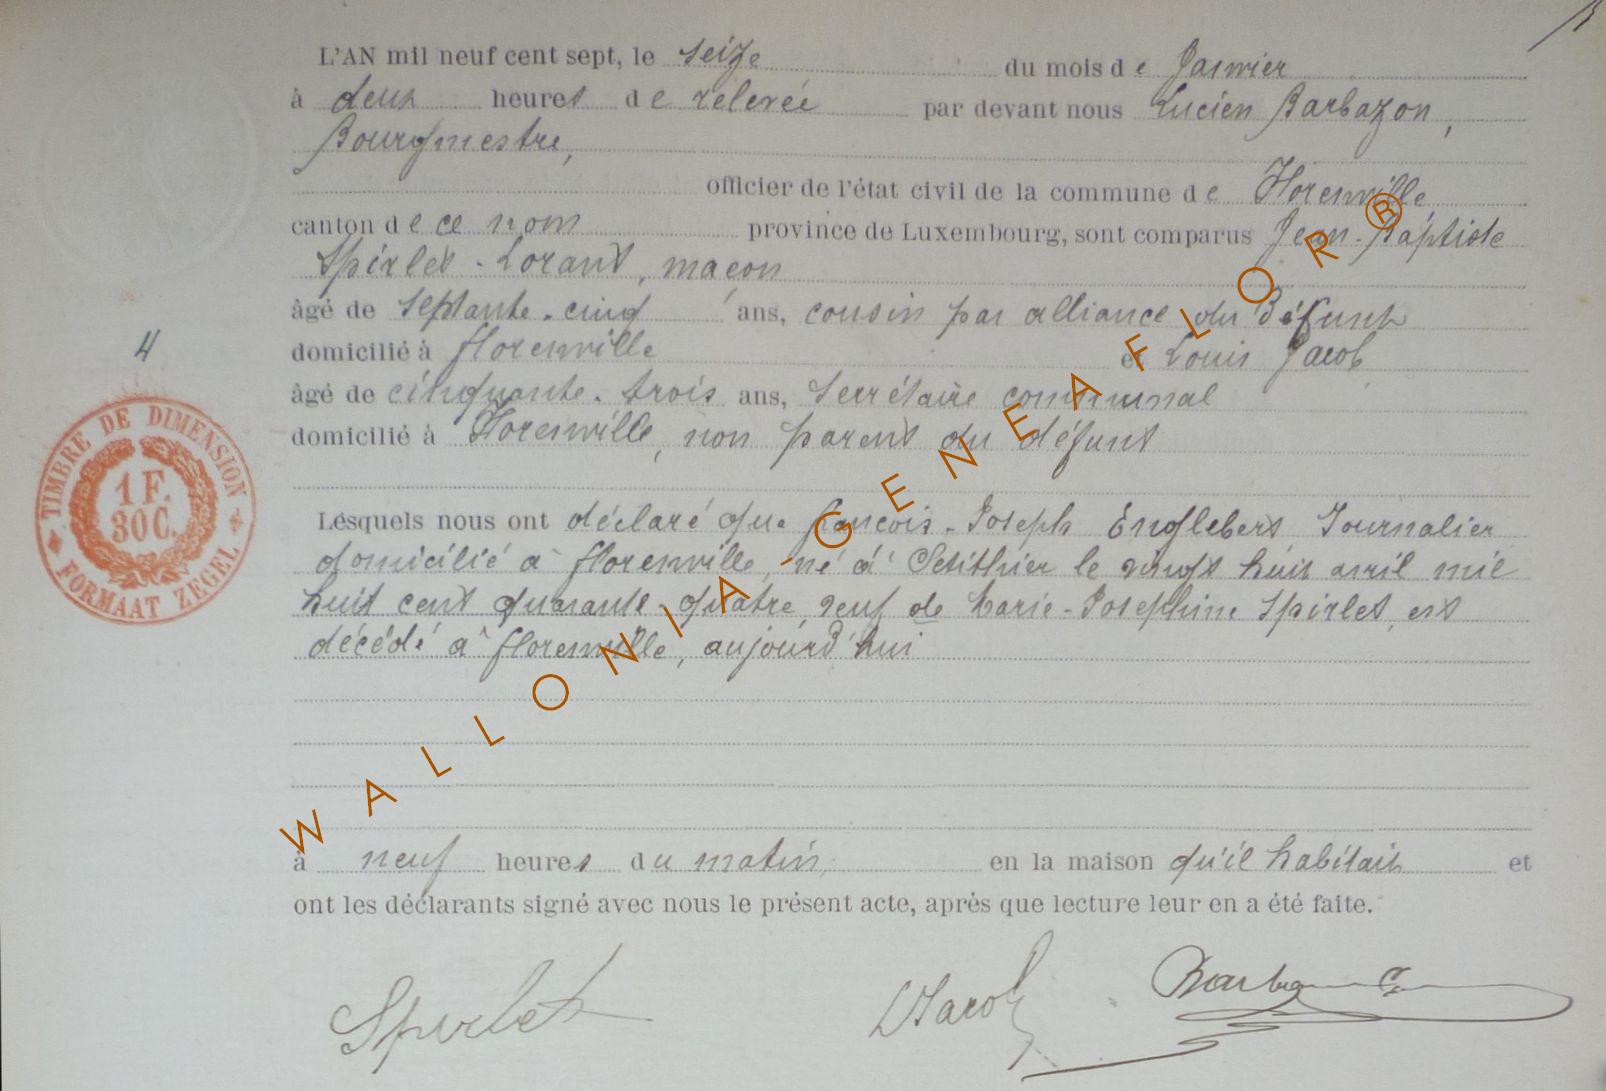 L'AN mil neuf cent sept, le seize du mois de Janvier
à deux heures de relevée par devant nous Lucien Barbazon,
Bourgmestre,
officier de l'état civil de la commune de Florenville
canton de ce nom province de Luxembourg, sont comparus Jean-Baptiste
Spirlet-Lorant, maçon
âgé de septante-cinq ans, cousin par alliance du défunt
domicilié à Florenville et Louis Jacob,
âgé de cinquante-trois ans, Secrétaire communal
domicilié à Florenville, non parent du défunt
4
TIMBRE DE DIMENSION
1 F.
30 C.
FORMAAT ZEGEL
Lesquels nous ont déclaré que françois-Joseph Englebert Journalier
domicilié à florenville, né à Petithier le vingt huit avril mil
huit cent quarante-quatre, veuf de Marie-Josephine Spirlet, est
décédé à florenville, aujourd'hui
à neuf heures du matin, en la maison qu'il habitait et
ont les déclarants signé avec nous le présent acte, après que lecture leur en a été faite.
Spirlet LJacob Barbazon
WALLONIA-GENEAFLOR®